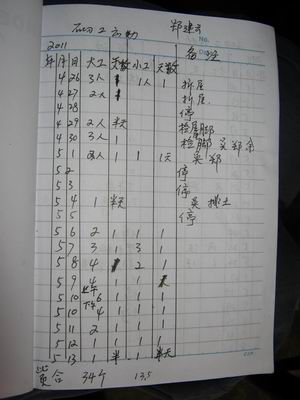 砌工 考勤 郑建
NO.
2011
年 月 日 大工 天数 小工 天数 备注
4 26 3人 1 1人 1 拆屋
4 27 2人 拆屋
4 28 停
4 29 2人 半天 捡屋脚
4 30 3人 1 捡脚 吴 郑 余
5 1 2人 1 1 1天 吴 郑
5 2 停
5 3 停
5 4 1 半天 吴 挑土
5 5 停
5 6 2 1 1 1
5 7 3 1 3 1
5 8 4 2 1
5 9 4 1 1
5 10 上午6 1 1 1
5 10 下午4 1 1 1
5 11 2 1 1 1
5 12 1 1 1 1
5 13 1 半 1 半天
合 34个 13.5